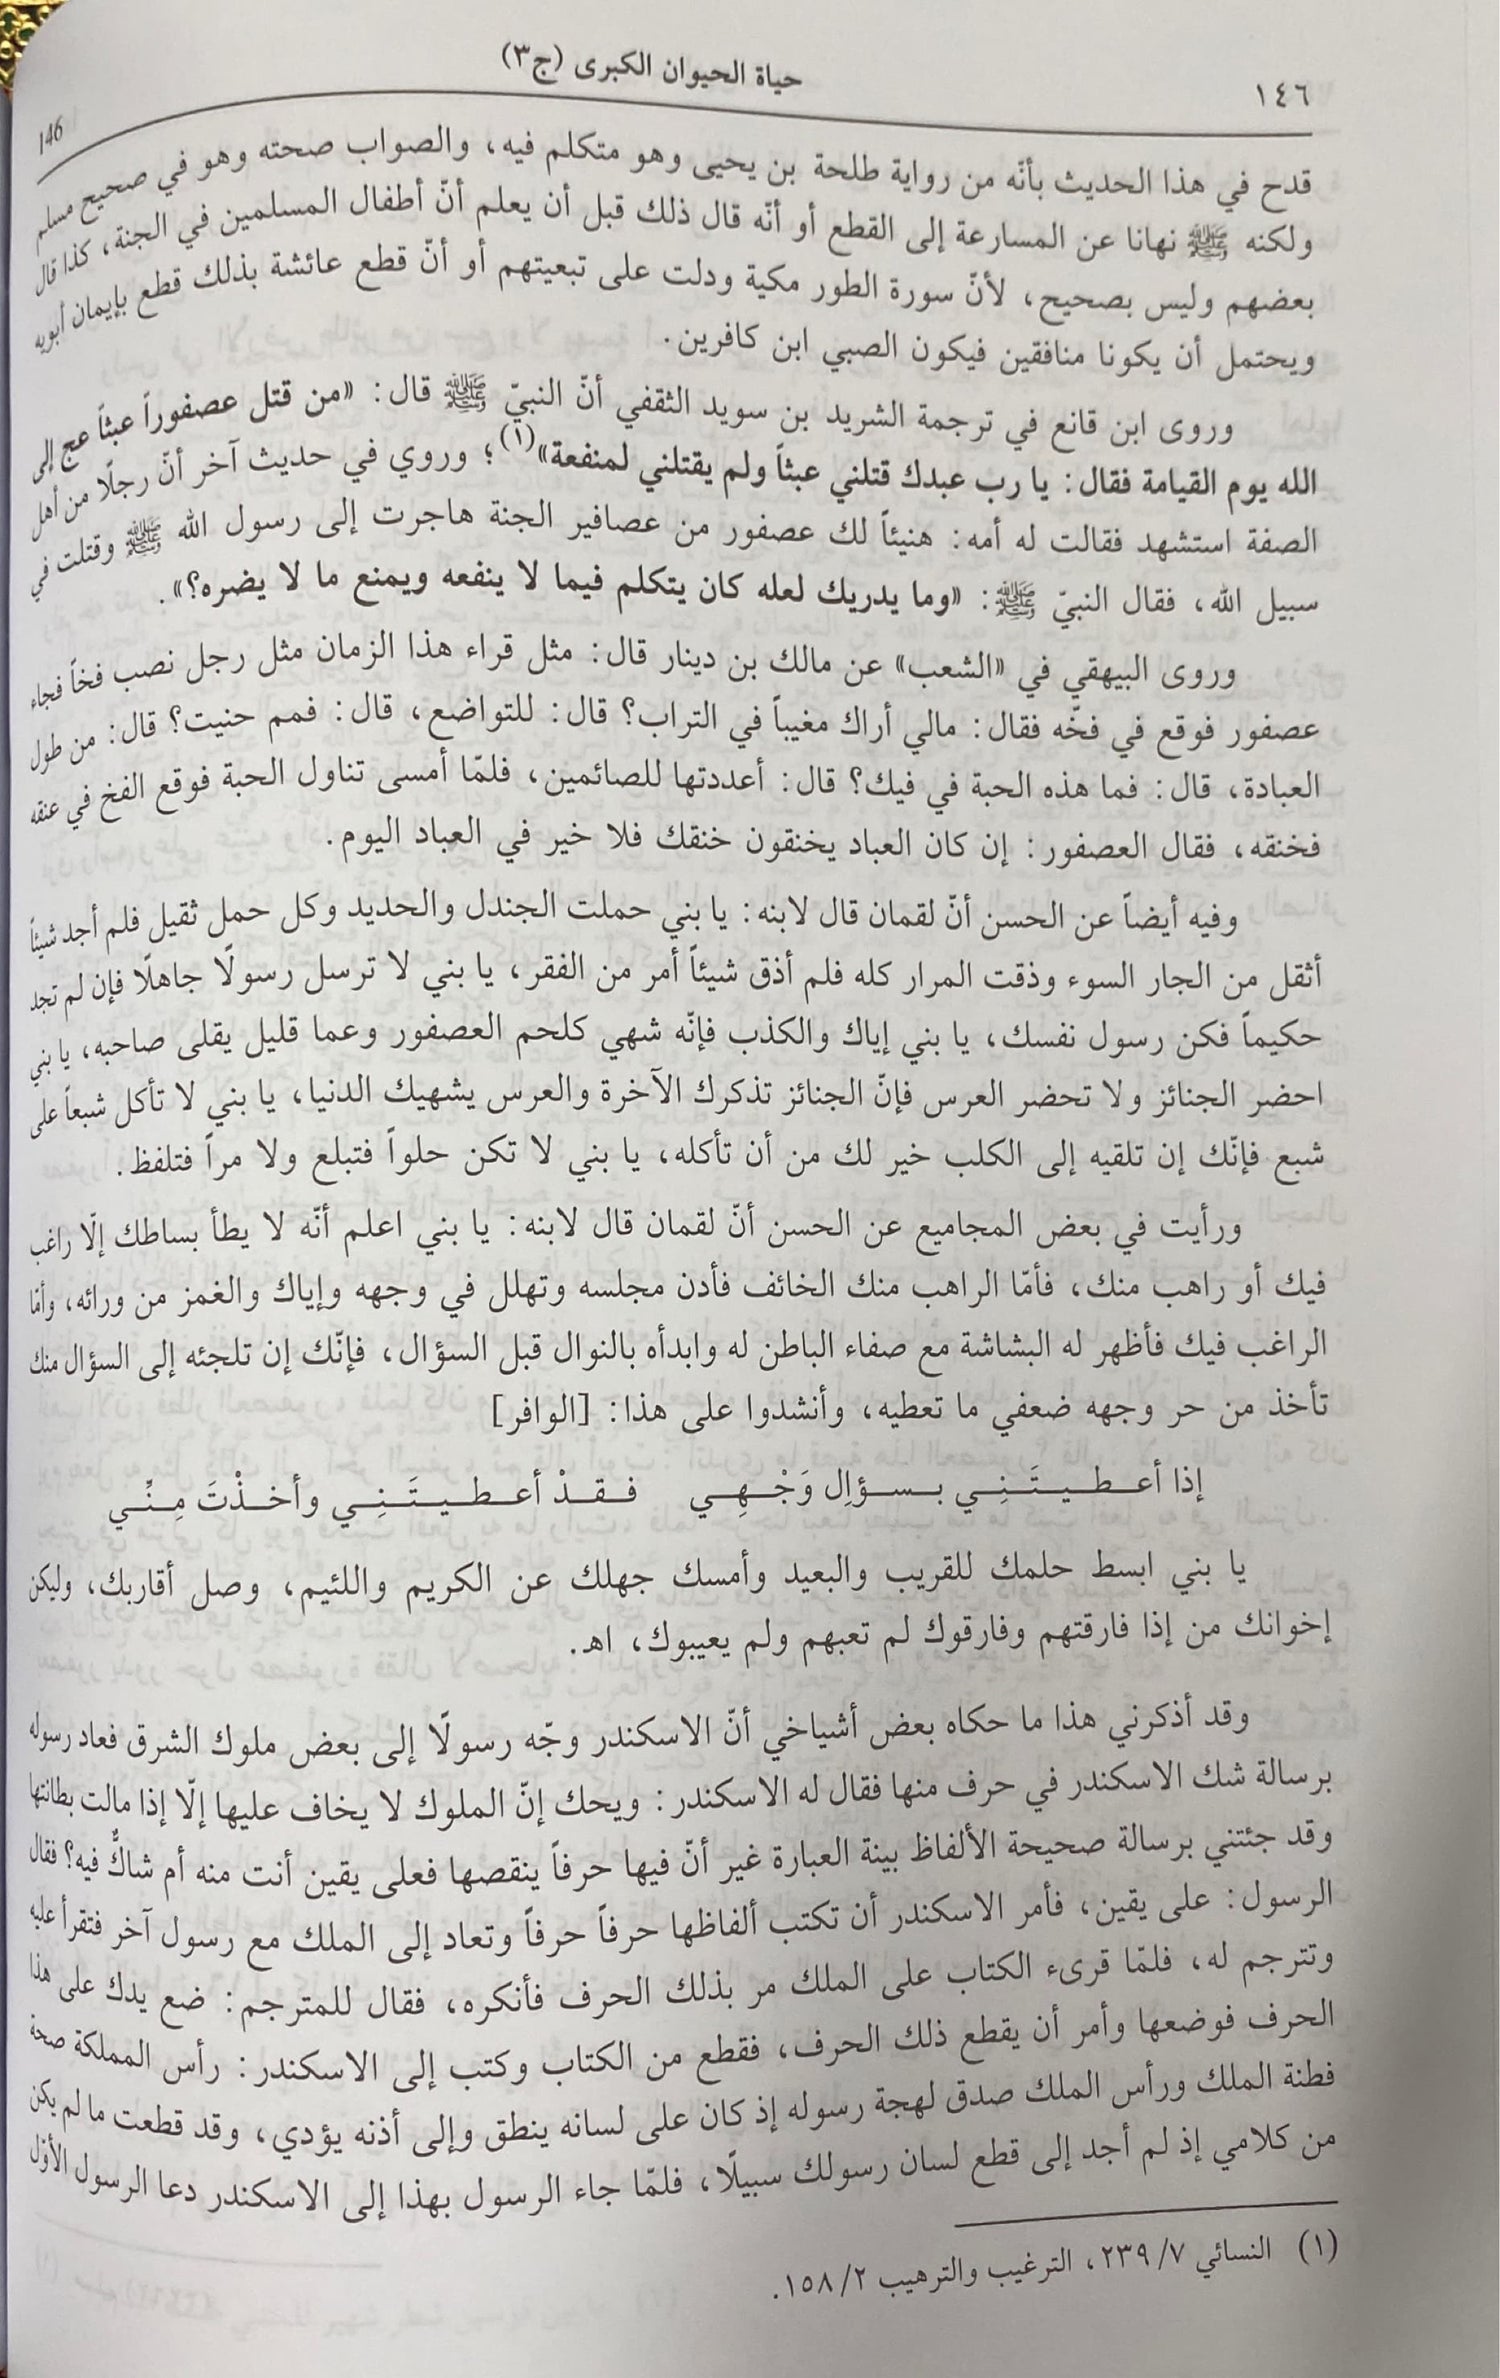 ١٤٦
حياة الحيوان الكبرى (ج٣)
146
قدح في هذا الحديث بأنّه من رواية طلحة بن يحيى وهو متكلم فيه، والصواب صحته وهو في صحيح مسلم
ولكنه ﷺ نهانا عن المسارعة إلى القطع أو أنّه قال ذلك قبل أن يعلم أنّ أطفال المسلمين في الجنة، كذا قال
بعضهم وليس بصحيح، لأنّ سورة الطور مكية ودلت على تبعيتهم أو أنّ قطع عائشة بذلك قطع بإيمان أبويه
ويحتمل أن يكونا منافقين فيكون الصبي ابن كافرين.
وروى ابن قانع في ترجمة الشريد بن سويد الثقفي أنّ النبيّ ﷺ قال: «من قتل عصفوراً عبثاً عج إلى
الله يوم القيامة فقال: يا رب عبدك قتلني عبثاً ولم يقتلني لمنفعة»(١)؛ وروي في حديث آخر أنّ رجلًا من أهل
الصفة استشهد فقالت له أمه: هنيئاً لك عصفور من عصافير الجنة هاجرت إلى رسول الله ﷺ وقتلت في
سبيل الله، فقال النبيّ ﷺ: «وما يدريك لعله كان يتكلم فيما لا ينفعه ويمنع ما لا يضره؟».
وروى البيهقي في «الشعب» عن مالك بن دينار قال: مثل قراء هذا الزمان مثل رجل نصب فخاً فجاء
عصفور فوقع في فخّه فقال: مالي أراك مغيباً في التراب؟ قال: للتواضع، قال: فمم حنيت؟ قال: من طول
العبادة، قال: فما هذه الحبة في فيك؟ قال: أعددتها للصائمين، فلمّا أمسى تناول الحبة فوقع الفخ في عنقه
فخنقه، فقال العصفور: إن كان العباد يخنقون خنقك فلا خير في العباد اليوم.
وفيه أيضاً عن الحسن أنّ لقمان قال لابنه: يا بني حملت الجندل والحديد وكل حمل ثقيل فلم أجد شيئاً
أثقل من الجار السوء وذقت المرار كله فلم أذق شيئاً أمر من الفقر، يا بني لا ترسل رسولًا جاهلًا فإن لم تجد
حكيماً فكن رسول نفسك، يا بني إياك والكذب فإنّه شهي كلحم العصفور وعما قليل يقلى صاحبه، يا بني
احضر الجنائز ولا تحضر العرس فإنّ الجنائز تذكرك الآخرة والعرس يشهيك الدنيا، يا بني لا تأكل شبعاً على
شبع فإنّك إن تلقيه إلى الكلب خير لك من أن تأكله، يا بني لا تكن حلواً فتبلع ولا مراً فتلفظ.
ورأيت في بعض المجاميع عن الحسن أنّ لقمان قال لابنه: يا بني اعلم أنّه لا يطأ بساطك إلّا راغب
فيك أو راهب منك، فأمّا الراهب منك الخائف فأدن مجلسه وتهلل في وجهه وإياك والغمز من ورائه، وأمّا
الراغب فيك فأظهر له البشاشة مع صفاء الباطن له وابدأه بالنوال قبل السؤال، فإنّك إن تلجئه إلى السؤال منك
تأخذ من حر وجهه ضعفي ما تعطيه، وأنشدوا على هذا: [الوافر]
إذا أعطيتَنِي بسؤاِل وَجْهِي فقدْ أعطيتَنِي وأخذْتَ مِنِّي
يا بني ابسط حلمك للقريب والبعيد وأمسك جهلك عن الكريم واللئيم، وصل أقاربك، وليكن
إخوانك من إذا فارقتهم وفارقوك لم تعبهم ولم يعيبوك، اهـ.
وقد أذكرني هذا ما حكاه بعض أشياخي أنّ الاسكندر وجّه رسولًا إلى بعض ملوك الشرق فعاد رسوله
برسالة شك الاسكندر في حرف منها فقال له الاسكندر: ويحك إنّ الملوك لا يخاف عليها إلّا إذا مالت بطانتها
وقد جئتني برسالة صحيحة الألفاظ بينة العبارة غير أنّ فيها حرفاً ينقصها فعلى يقين أنت منه أم شاكٌّ فيه؟ فقال
الرسول: على يقين، فأمر الاسكندر أن تكتب ألفاظها حرفاً حرفاً وتعاد إلى الملك مع رسول آخر فتقرأ عليه
وتترجم له، فلمّا قرىء الكتاب على الملك مر بذلك الحرف فأنكره، فقال للمترجم: ضع يدك على هذا
الحرف فوضعها وأمر أن يقطع ذلك الحرف، فقطع من الكتاب وكتب إلى الاسكندر: رأس المملكة صحة
فطنة الملك ورأس الملك صدق لهجة رسوله إذ كان على لسانه ينطق وإلى أذنه يؤدي، وقد قطعت ما لم يكن
من كلامي إذ لم أجد إلى قطع لسان رسولك سبيلًا، فلمّا جاء الرسول بهذا إلى الاسكندر دعا الرسول الأوّل
(١) النسائي ٢٣٩/٧، الترغيب والترهيب ١٥٨/٢.